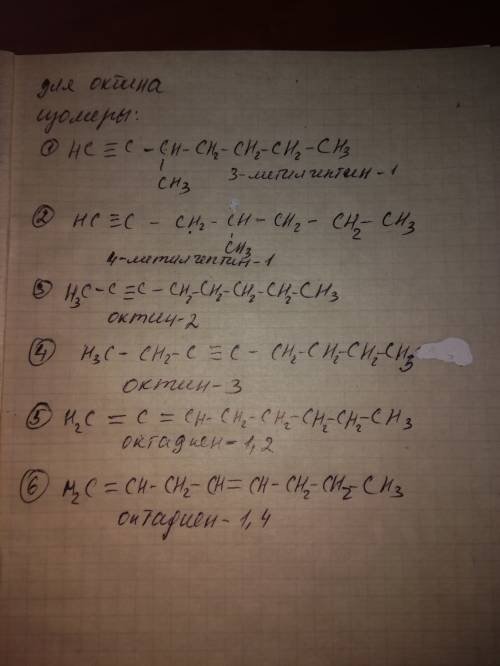 для октина
изомеры:
① HC ≡ C – CH – CH₂ – CH₂ – CH₂ – CH₃
CH₃ 3-метилгептин-1
② HC ≡ C – CH₂ – CH – CH₂ – CH₂ – CH₃
CH₃
4-метилгептин-1
③ H₃C – C ≡ C – CH₂ – CH₂ – CH₂ – CH₂ – CH₃
октин-2
④ H₃C – CH₂ – C ≡ C – CH₂ – CH₂ – CH₂ – CH₃
октин-3
⑤ H₂C = C = CH – CH₂ – CH₂ – CH₂ – CH₂ – CH₃
октадиен-1,2
⑥ H₂C = CH – CH₂ – CH = CH – CH₂ – CH₂ – CH₃
октадиен-1,4